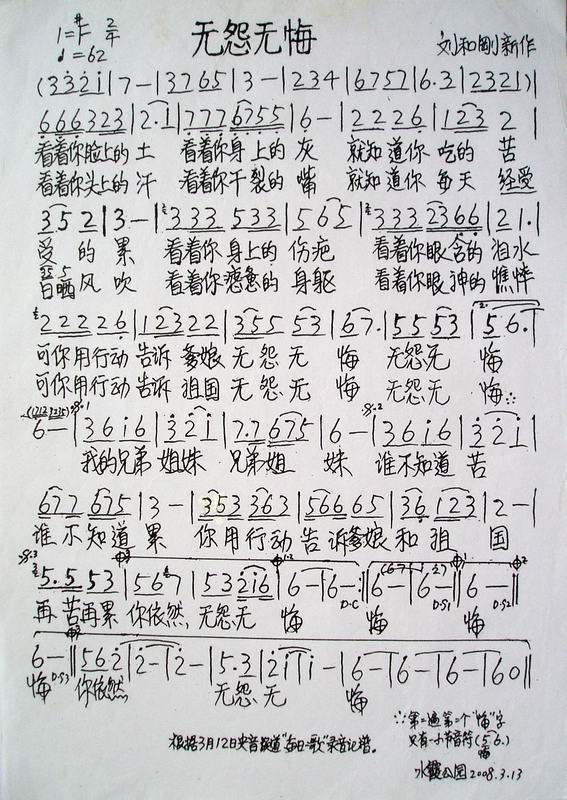 1=#F 2/4
♩=62
无怨无悔
刘和刚新作
(3 3 2 1 | 7 — | 3 7 6 5 | 3 — | 2 3 4 | 6 7 5 7 | 6·3 | 1 2 3 2 1)
6 6 6 3 2 3 | 2·1 | 7 7 7 6 7 5 5 | 6 — | 2 2 2 6 | 1 2 3 2 |
看着你脸上的 土 看着你身上的 灰 就知道你 吃的 苦
看着你头上的 汗 看着你干裂的 嘴 就知道你 每天 经受
3 5 2 | 3 — | 3 3 3 5 3 3 | 5 6 5 | 3 3 3 2 3 6 6 | 2 1· |
受 的 累 看着你身上的 伤疤 看着你眼含的 泪水
日晒 风 吹 看着你 的 身躯 看着你眼神的 憔悴
2 2 2 2 6 | 1 2 3 2 2 | 3 5 5 5 3 | 6 7· | 5 5 5 3 | 5 6· |
可你用行动 告诉 爹娘 无 怨 无 悔 无怨无 悔
可你用行动 告诉 祖国 无 怨 无 悔 无怨无 悔
6 — | 3 6 1 6 | 3 2 1 | 7·7 6 7 5 | 6 — | 3 6 1 6 | 3 2 1 |
我的兄弟 姐妹 兄弟姐 妹 谁不知道 苦
6 7 7 6 7 5 | 3 — | 3 5 3 3 6 3 | 5 6 6 6 5 | 3 6 1 2 3 | 2 — |
谁不知道 累 你用行动 告诉爹娘 和 祖 国
5·5 5 3 | 5 6 7 | 5 3 2 1 6 | 6 — | 6 — | 6 — | 6 — |
D.C D.S1 D.S2
再苦再累 你依然, 无怨无 悔 悔 悔
6 — | 5 6 2 | 2 — | 2 — | 5·3 | 2 1 | 1 — | 6 — | 6 — | 6 — | 6 0 |
悔 D.S3 你依然 无怨 无 悔
∵第二遍第二个"悔"字
只有一小节音符(5 6·)
悔
根据3月12日央音报道"每日一歌"录音记谱。
水霞公园2008.3.13